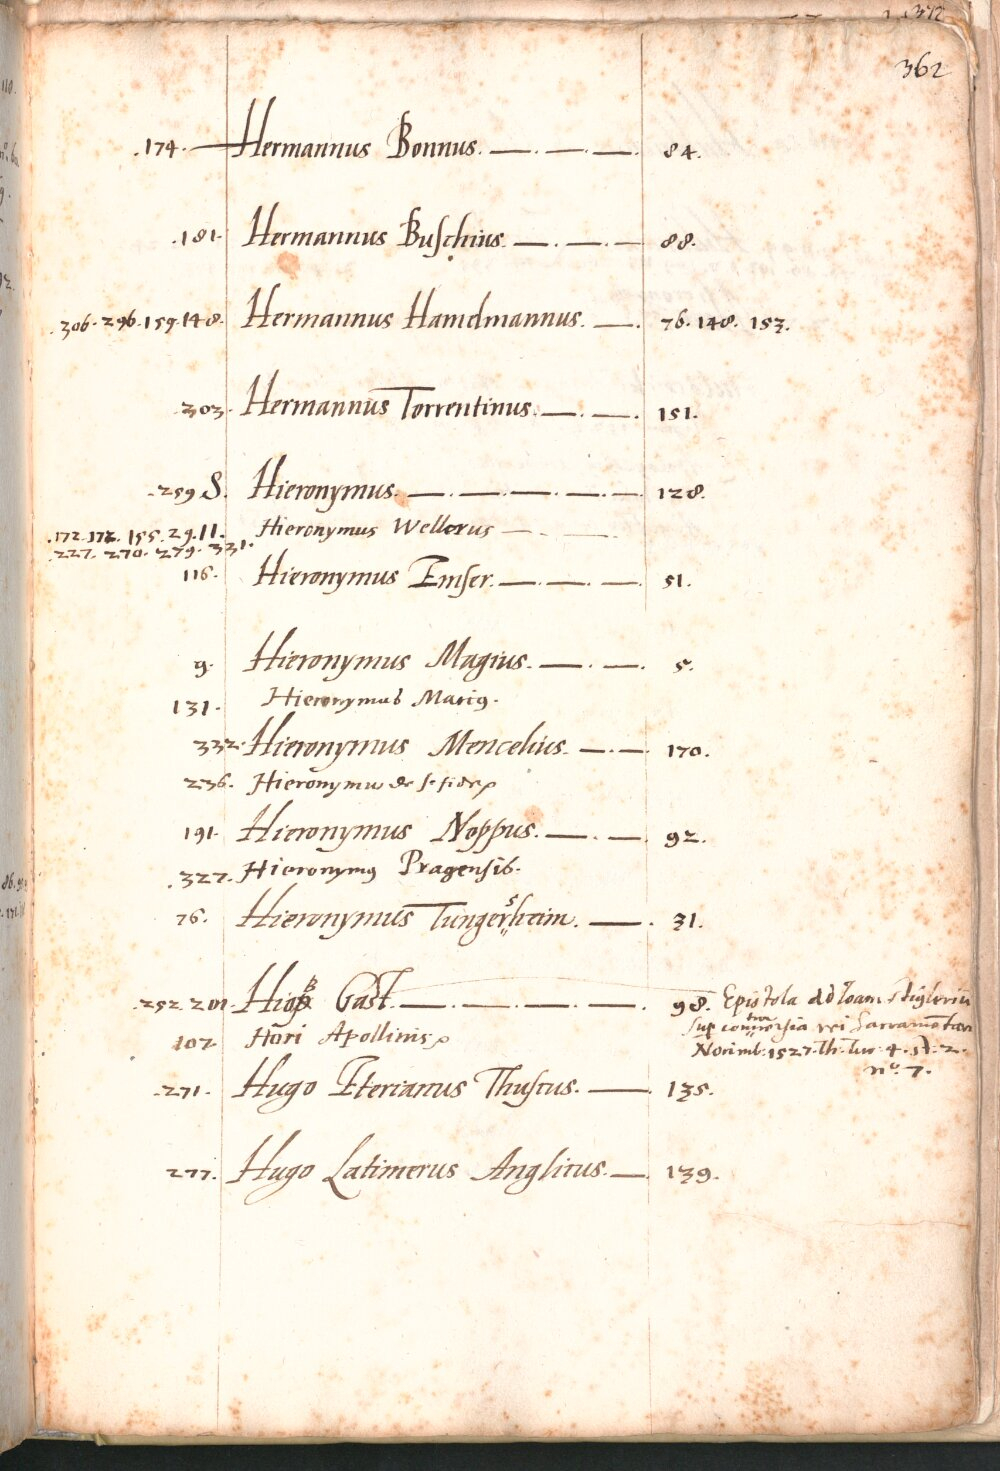 372
362
.174. Hermannus Bonnus. 84.
.181. Hermannus Buschius. 88.
.306. 296. 159. 148. Hermannus Hamelmannus. 76. 148. 153.
303. Hermannus Torrentinus. 151.
.259 S. Hieronymus. 128.
.172. 172. 155. 29. 11. Hieronymus Wellerus
.227. 270. 279. 331.
116. Hieronymus Emser. 51.
9. Hieronymus Magius. 5.
131. Hieronymus Marius.
332. Hieronymus Mencelius. 170.
236. Hieronymus de
191. Hieronymus Noppus. 92.
.327. Hieronymus Pragensis.
76. Hieronymus Tungersheim. 31.
.252 201. Gast. 98. Epistola ad Ioan. Stiglerium
sup controversia rei Sacramentar
107. Hori Apollinis
Norimb: 1527. Th. Luc. 4. A. 2.
nº. 7.
.271. Hugo Eterianus Thuscus. 135.
277. Hugo Latimerus Anglicus. 139.